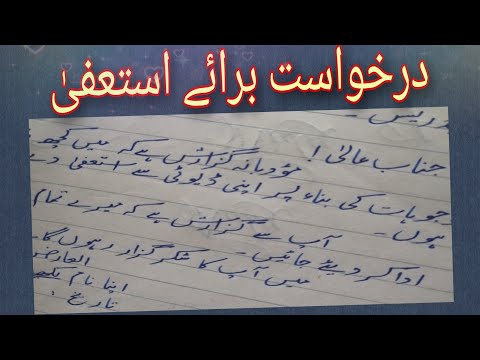 درخواست برائے استعفیٰ
جناب عالی!
مؤدبانہ گزارش ہے کہ میں کچھ
وجوہات کی بناء پر اپنی ڈیوٹی سے استعفیٰ
ہوں۔
آپ سے گزارش ہے کہ میرے تمام
ادا کر دیئے جائیں۔
میں آپ کا شکر گزار رہوں گا۔
العارض
اپنا نام
تاریخ: